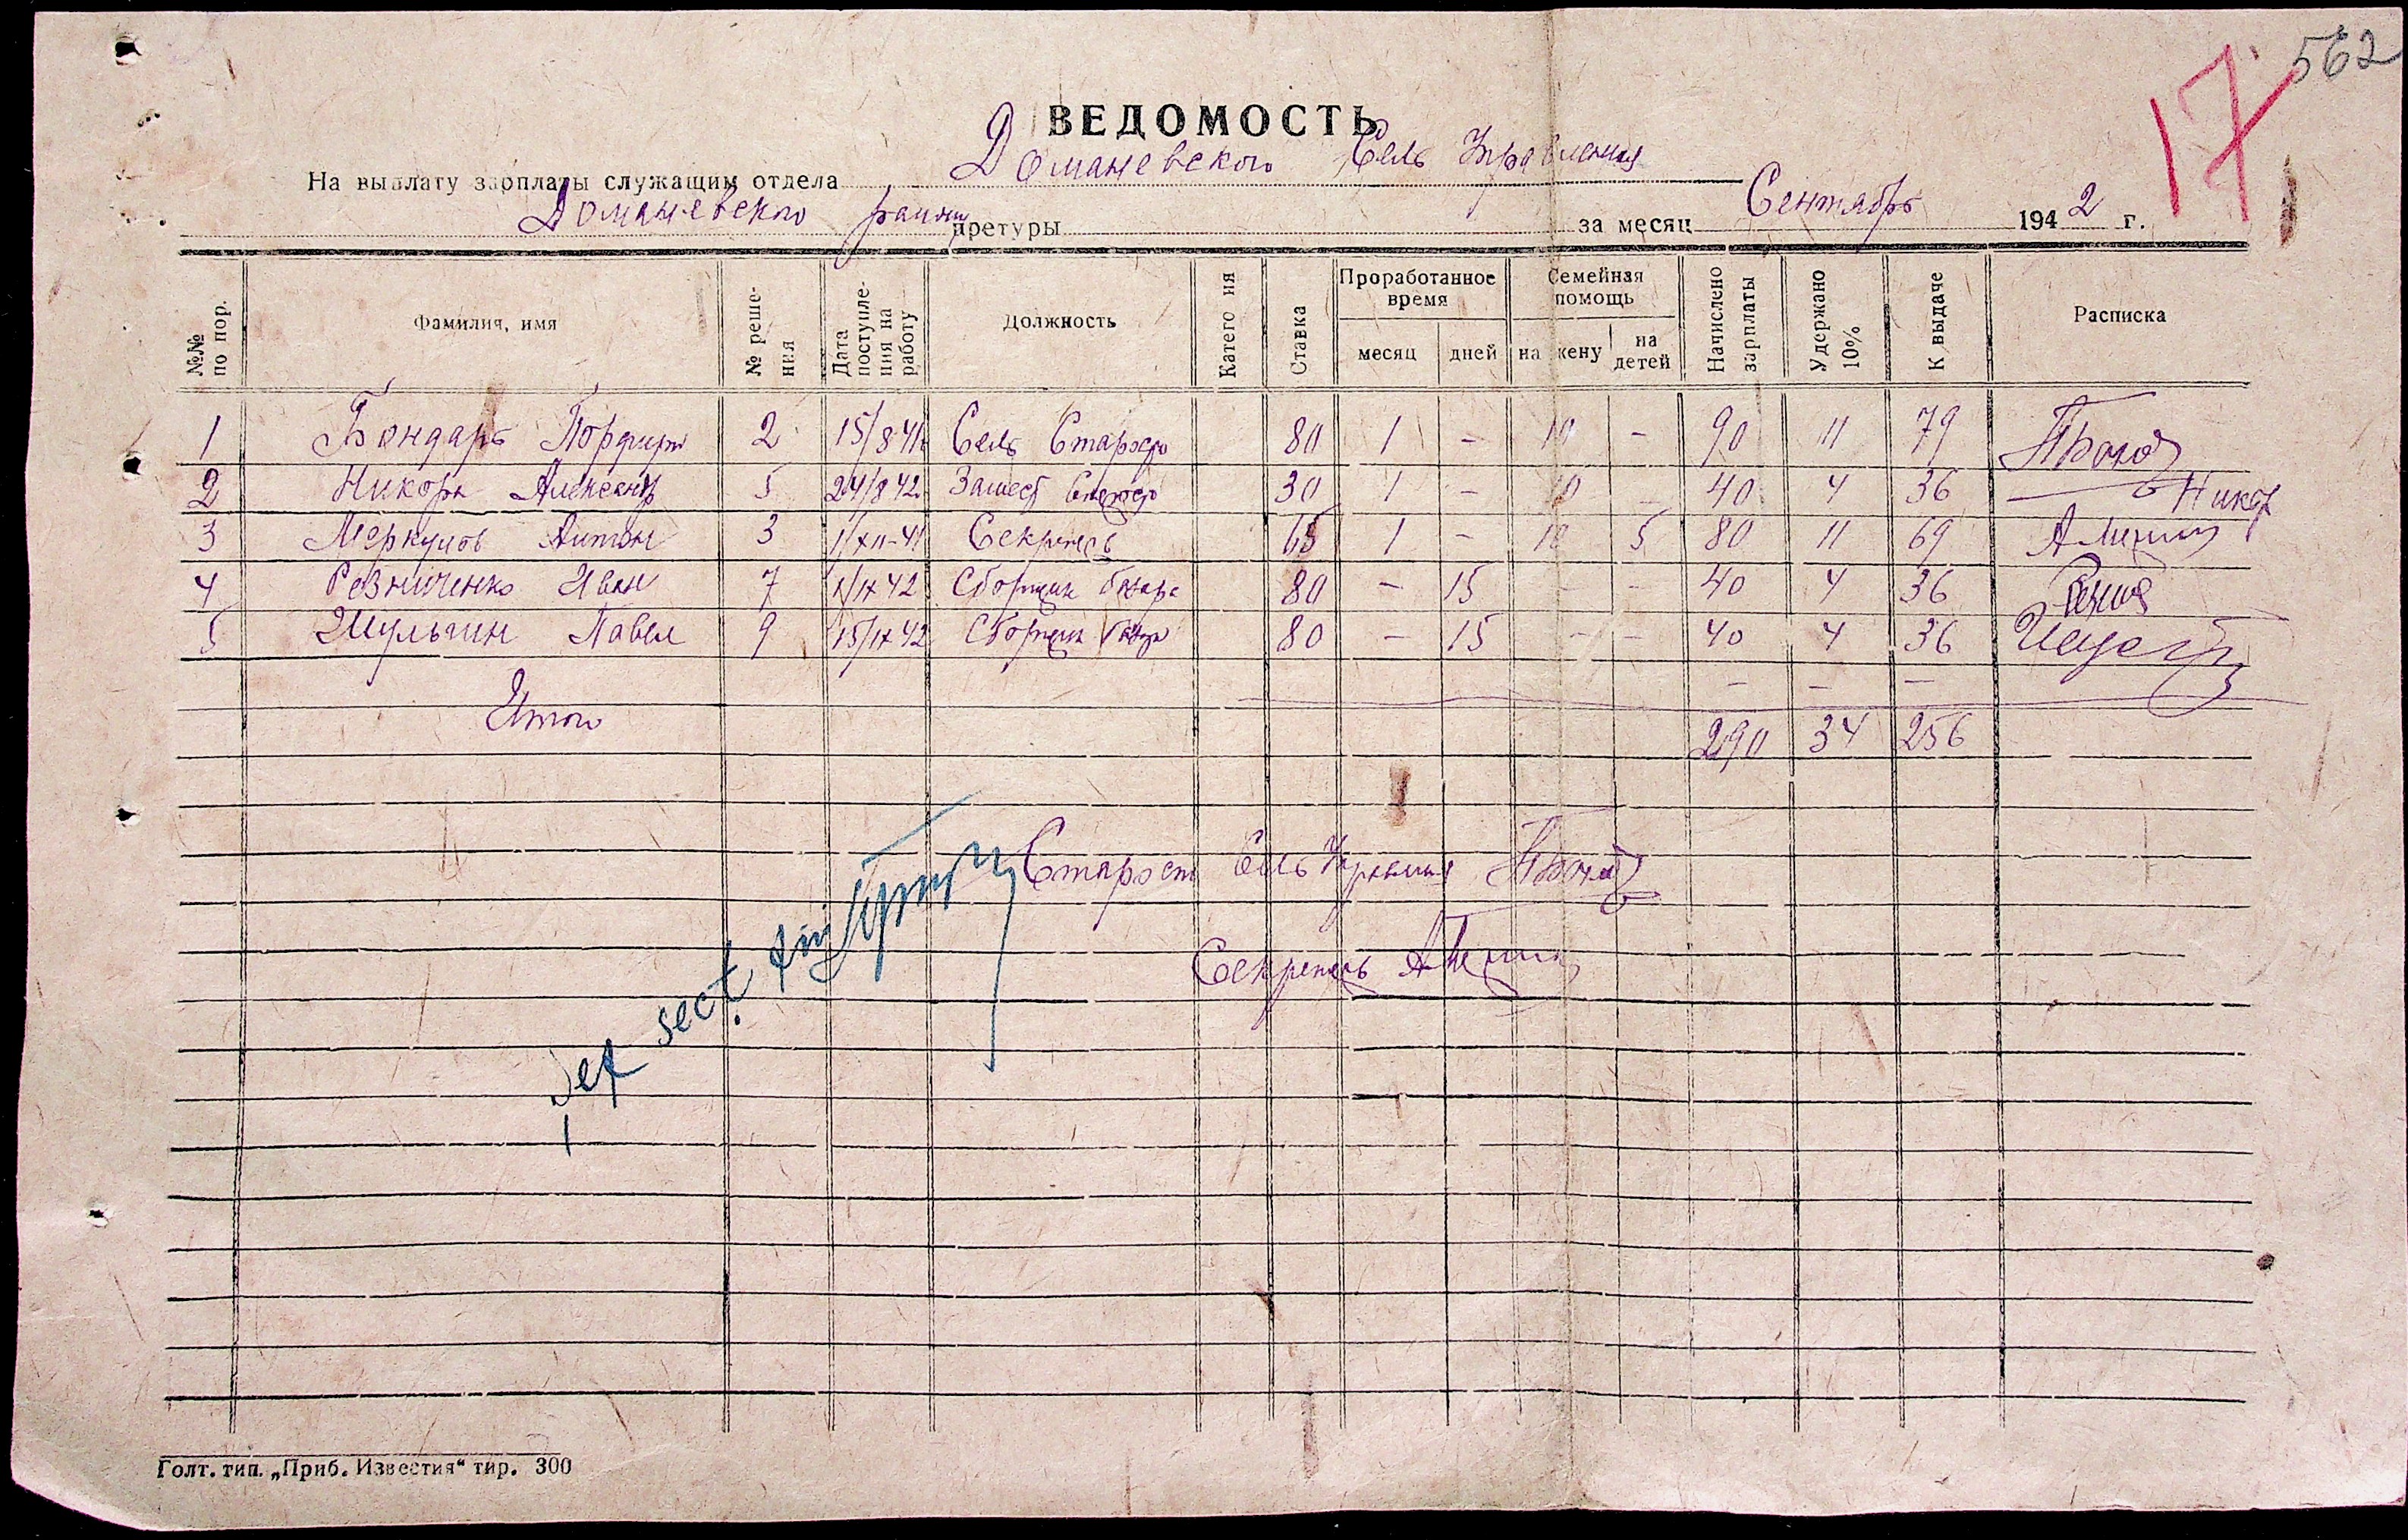 562
17
ВЕДОМОСТЬ
На выплату зарплаты служащим отдела Доманевского Сель Управления
Доманевского район претуры за месяц Сентябрь 1942 г.
№№ по пор. Фамилия, имя № решения Дата поступления на работу Должность Категория Ставка Проработанное время месяц дней Семейная помощь на жену на детей Начислено зарплаты Удержано 10% К выдаче Расписка
1 Бондарь Порфир 2 15/8 41 Сель Староста 80 1 - 10 - 90 11 79
2 Никора Александр 5 24/8 42 30 1 - 10 - 40 4 36 Никор
3 Меркулов Антон 3 1/XII-41 Секретарь 65 1 - 10 5 80 11 69
4 Резниченко Иван 7 1/IX 42 Сборщик 80 - 15 - - 40 4 36
5 Шульгин Павел 9 15/IX 42 Сборщик 80 - 15 - - 40 4 36
- - -
Итого 290 34 256
Старост Сель Управления
Секретарь
Șef sect.
Голт. тип. „Приб. Известия“ тир. 300